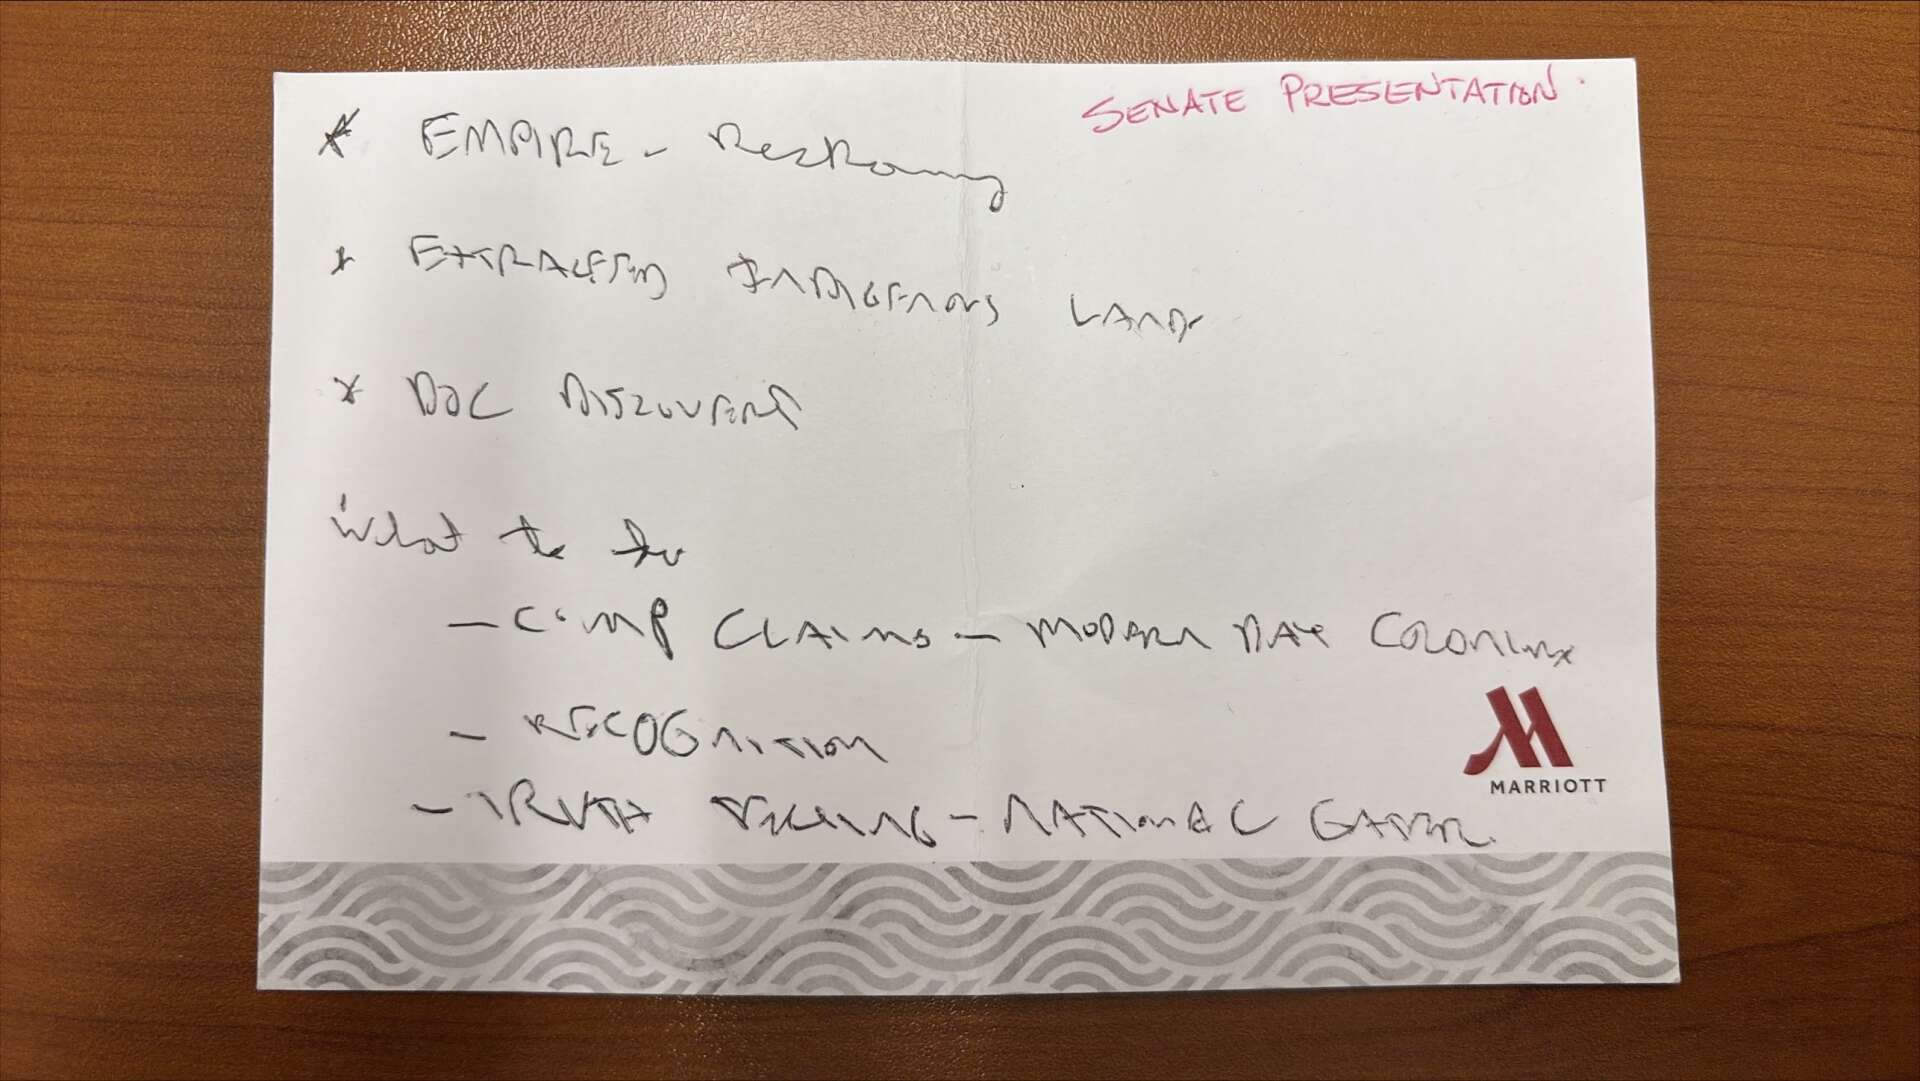 SENATE PRESENTATION.
* EMPIRE - Reckoning
* EXTRACTED INDIGENOUS LANDS
* DOC DISCOVERY
What to do
- COMP CLAIMS - MODERN DAY
- RECOGNITION
- TRUTH TELLING - NATIONAL
MARRIOTT